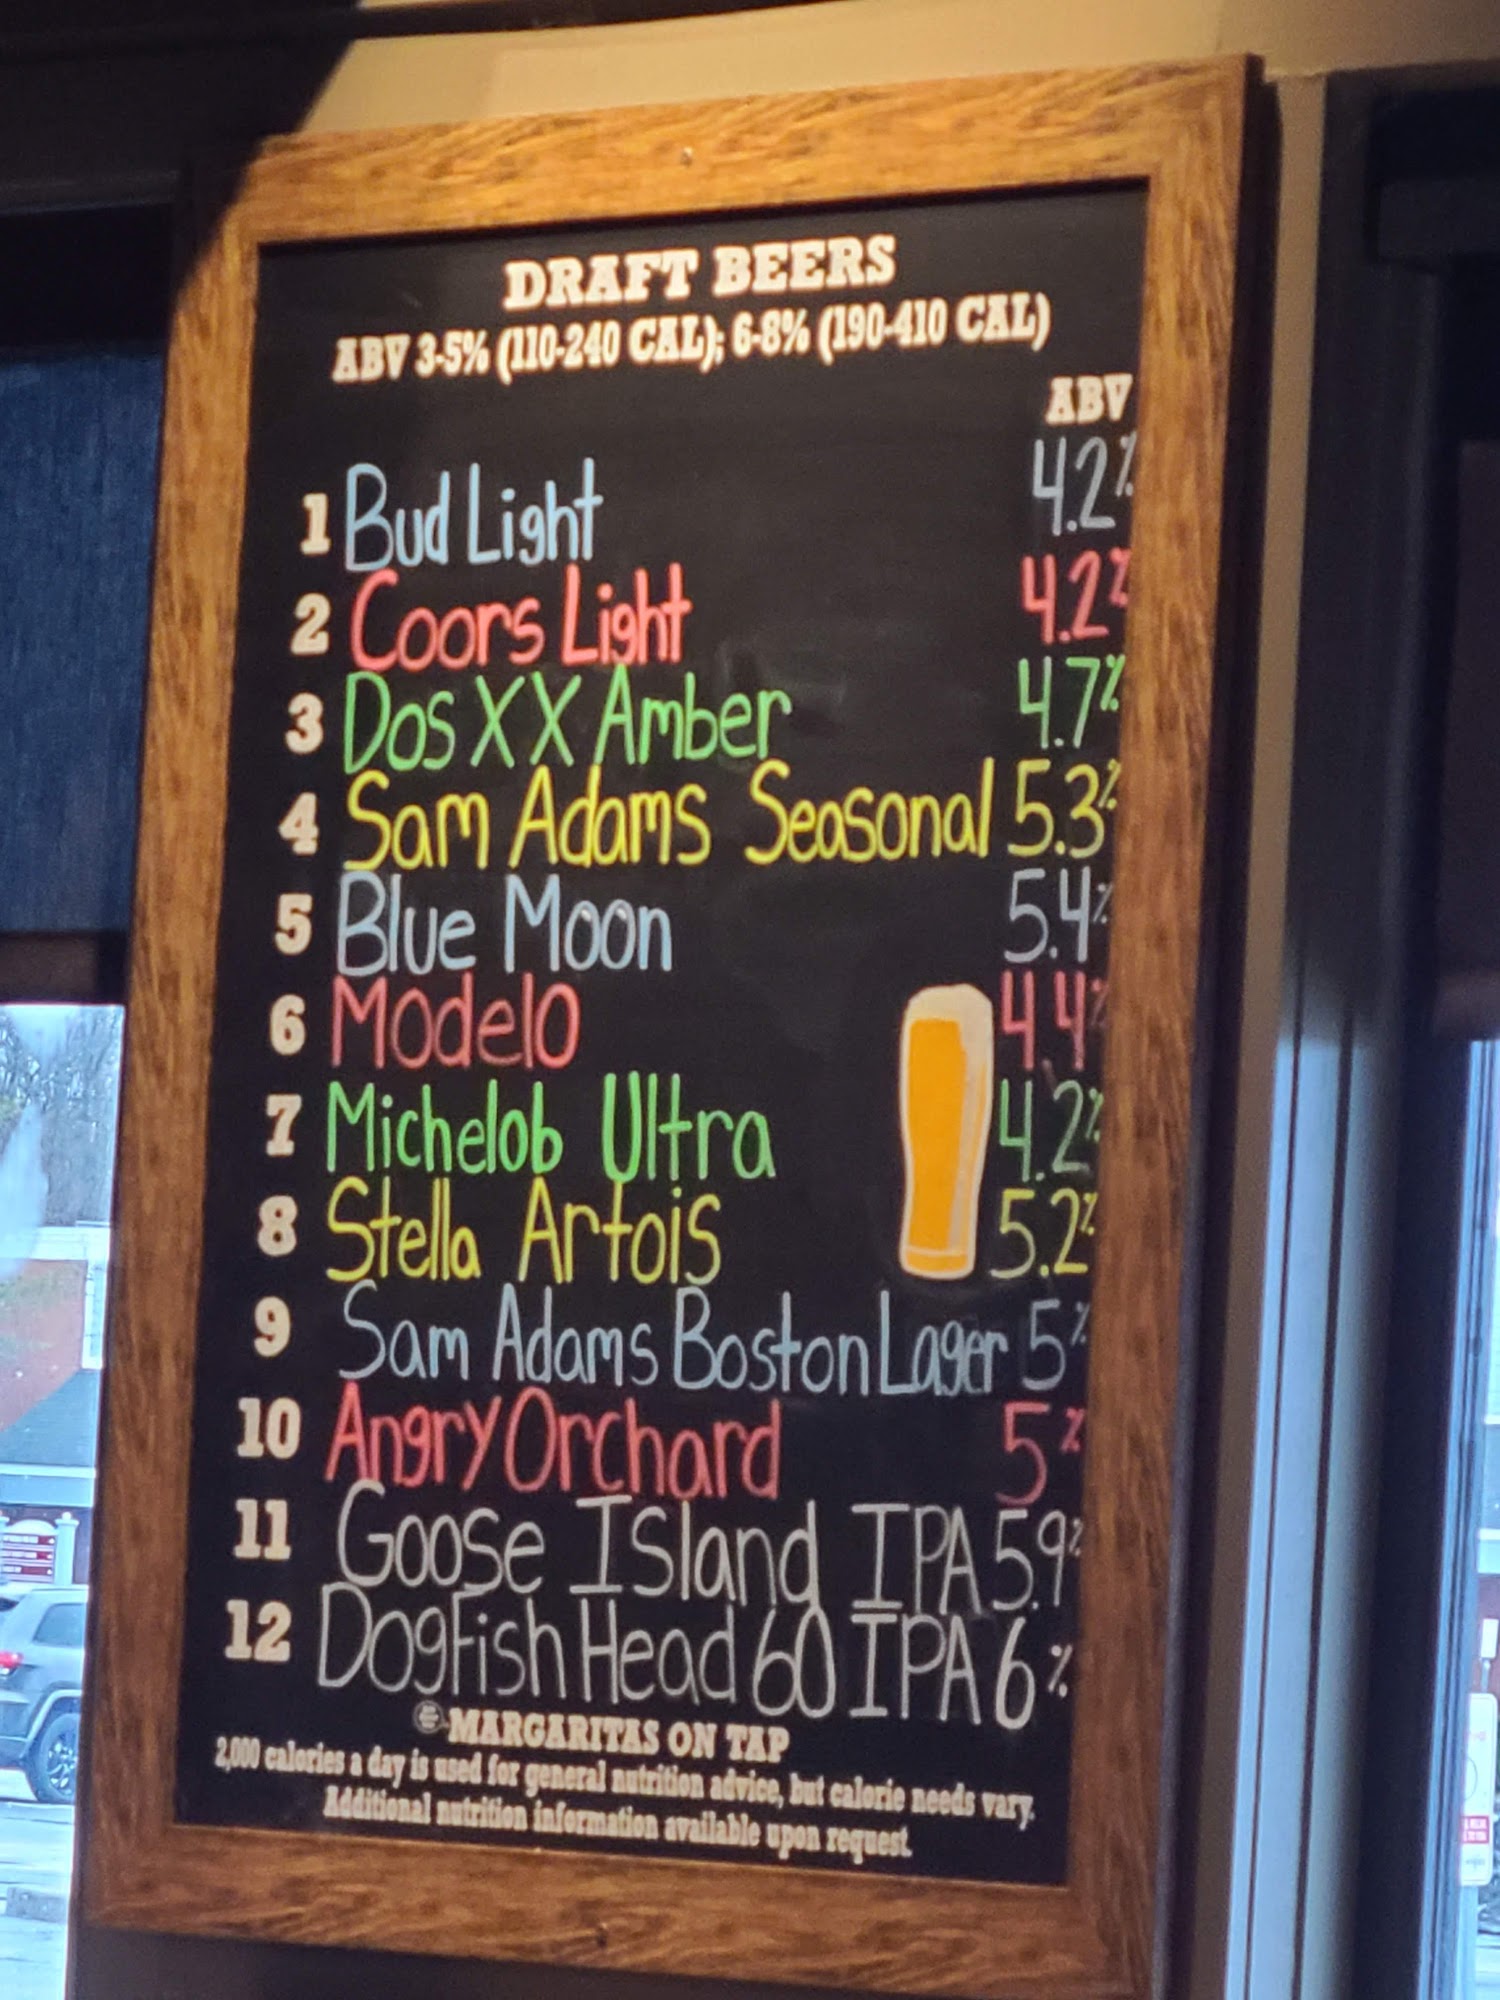 DRAFT BEERS
ABV 3-5% (110-240 CAL); 6-8% (190-410 CAL)
ABV
1 Bud Light 4.2%
2 Coors Light 4.2%
3 Dos XX Amber 4.7%
4 Sam Adams Seasonal 5.3%
5 Blue Moon 5.4%
6 Modelo 4.4%
7 Michelob Ultra 4.2%
8 Stella Artois 5.2%
9 Sam Adams Boston Lager 5%
10 Angry Orchard 5%
11 Goose Island IPA 5.9%
12 Dogfish Head 60 IPA 6%
MARGARITAS ON TAP
2,000 calories a day is used for general nutrition advice, but calorie needs vary.
Additional nutrition information available upon request.